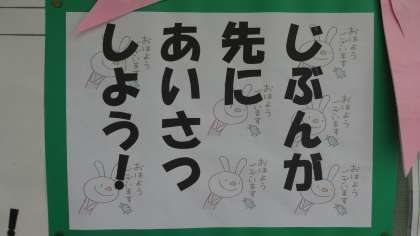 じぶんが
先に
あいさつ
しよう!
おはよう
ございます
おはよう
ございます
おはよう
ございます
おはよう
ございます
おはよう
ございます
おはよう
ございます